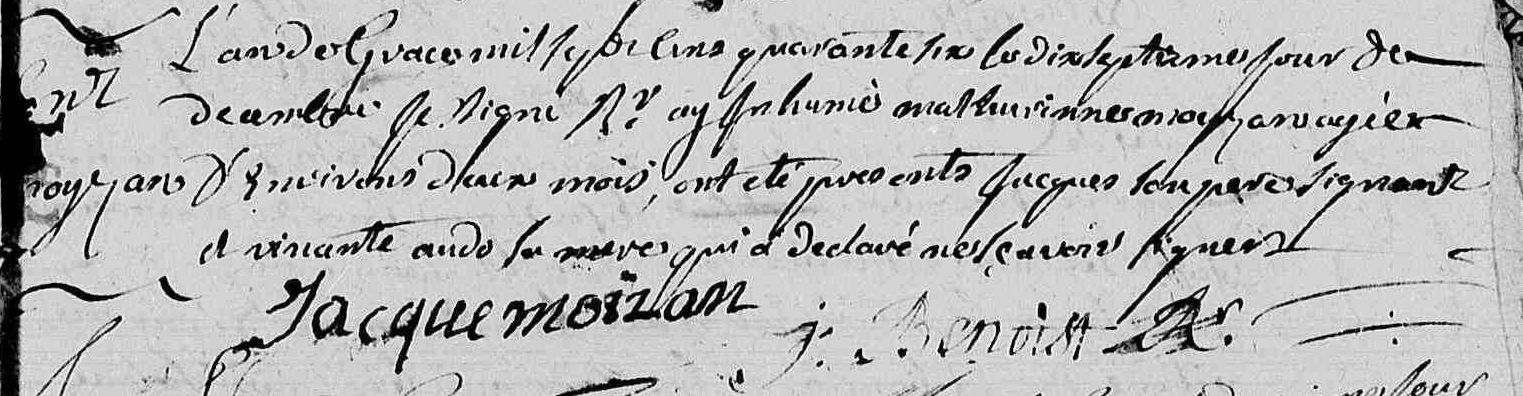 L'an de Grace mil sept cens quarante six le dix septieme jour de
decembre je signé Rr ay inhumé mathurinne moyzan agée
moyzan d'environs deux mois, ont eté presents jacques son pere signant
et vinante sa mere qui a declaré ne sçavoir signer
Jacque moizan J. Benoist Rr.